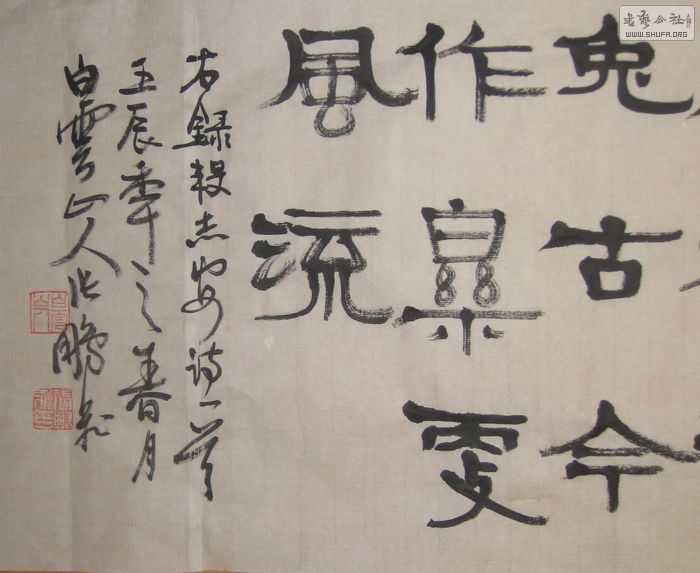 書藝公社
WWW.SHUFA.ORG
兔古今
作樂更
風流
右錄殷志安诗一首
壬辰年之春月
白雲山人张鹏